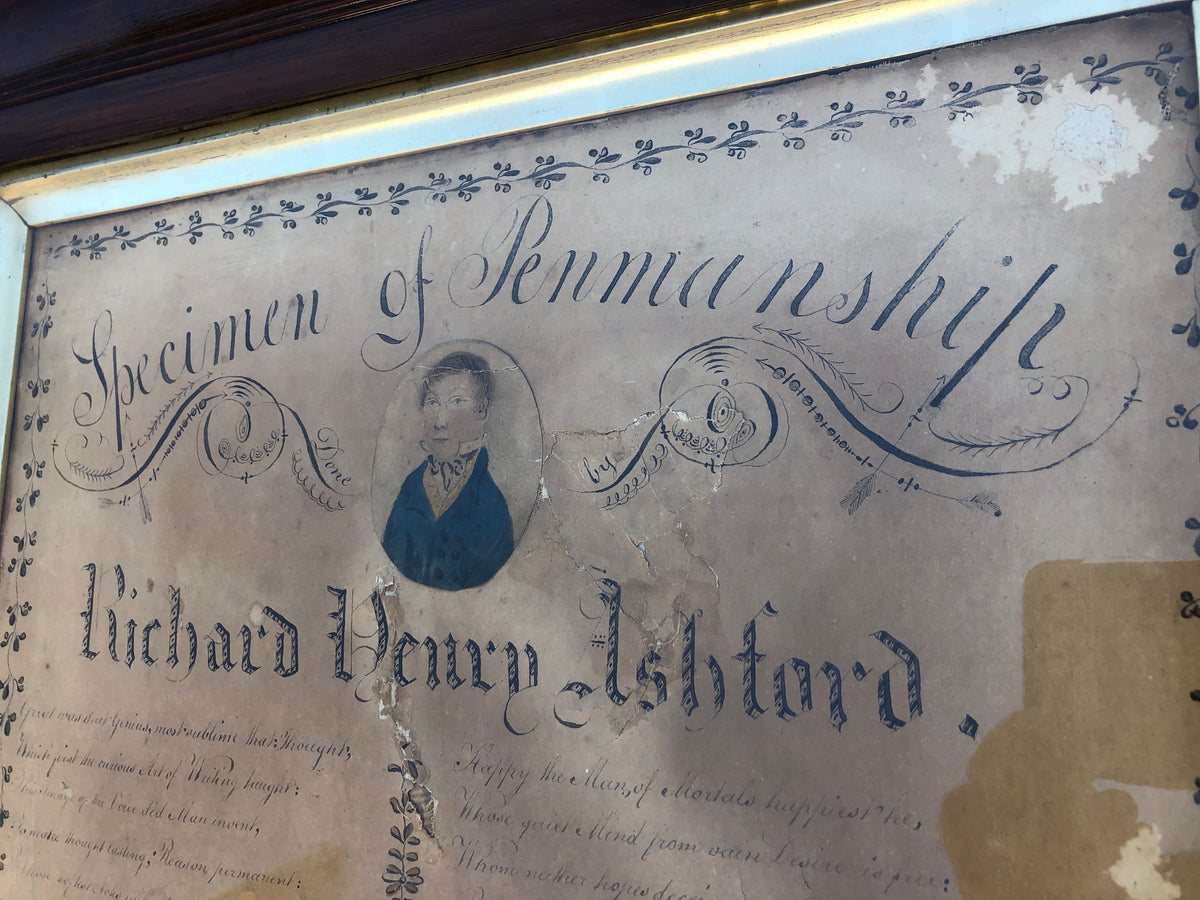 Specimen of Penmanship
Done by
Richard Henry Ashford.
Great was that Genius, most sublime that Thought,
Which first the curious Art of Writing taught:
This Image of the Voice did Man invent,
To make thought lasting; Reason permanent:
Whose
Happy the Man, of Mortals happiest he,
Whose quiet Mind from vain Desire is free:
Whom neither hopes